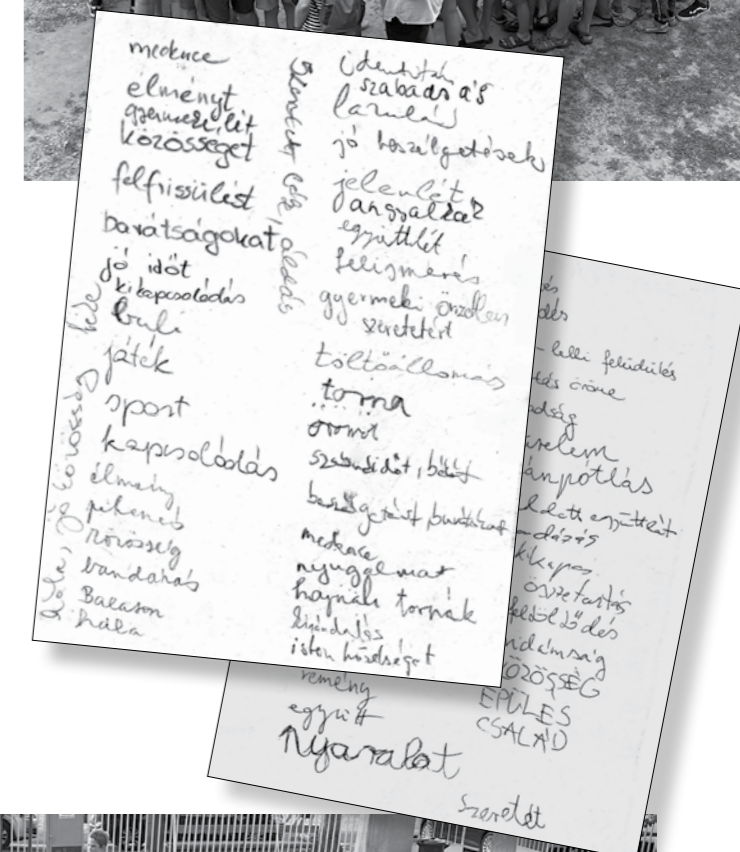 medence
élményt
gyermeklét
közösséget
felfrissülést
barátságokat
jó időt
kikapcsolódás
buli
játék
sport
kapcsolódás
élmény
pihenés
közösség
bandázás
Balaton
hála
közösség
áldás
identitás
szabadság
lazulás
jó beszélgetések
jelenlét
együttlét
felismerés
gyermeki önzetlen
szeretetért
töltőállomás
torna
örömöt
medence
nyugalmat
hajnali tornák
kirándulás
isten közelséget
lelki felüdülés
öröme
ánpótlás
együttlét
kikapcs
összetartás
feloldódés
vidámság
KÖZÖSSÉG
ÉPÜLÉS
CSALÁD
remény
együtt
Nyaralat
Szeretet